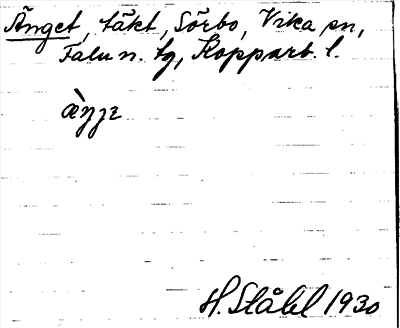 Änget, täkt, Sörbo, Vika sn,
Falu n. tg, Kopparb. l.
H. Ståhl 1930